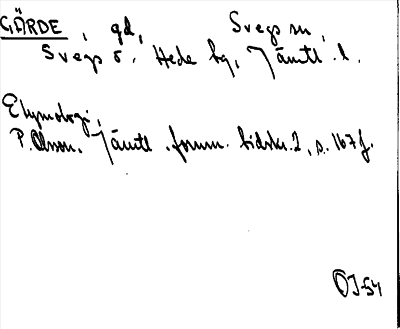 GÄRDE, gd, Svegs sn,
Svegs ö. Hede bg, Jämtl. l.
Etymologi,
P. Olsson. Jämtl. fornm. tidskr. 2, s. 167 f.
OJ-54